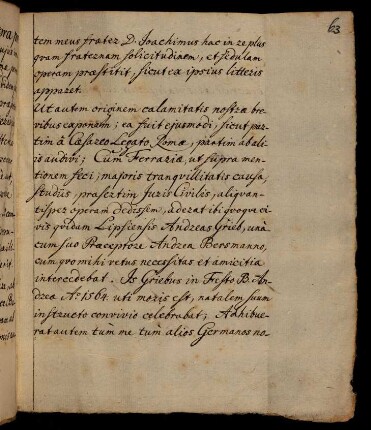 63
tem meus frater D. Joachimus hac in re plus
quam fraternam solicitudinem, et sedulam
operam præstitit, sicut ex ipsius litteris
apparet.
Ut autem originem calamitatis nostræ bre
vibus exponam; ea fuit ejusmodi, sicut par-
tim â Cæsareo Legato Romæ, partim ab ali-
is audivi; Cum Ferrariæ, ut supra men-
tionem feci, majoris tranquillitatis causa,
studiis, præsertim Juris Civilis, aliquan-
tisper operam dedissem, aderat ibi quoque ci-
vis quidam Lipsiensis Andreas Grieb, unâ
cum suo Præceptore Andrea Bersmanno,
cum quo mihi vetus necessitas et amicitia
intercedebat. Is Griebus in Festo B. An-
dreæ Aº 1564. uti moris est, natalem suum
instructo convivio celebrabat; Adhibue-
rat autem tùm me tum alios Germanos no-